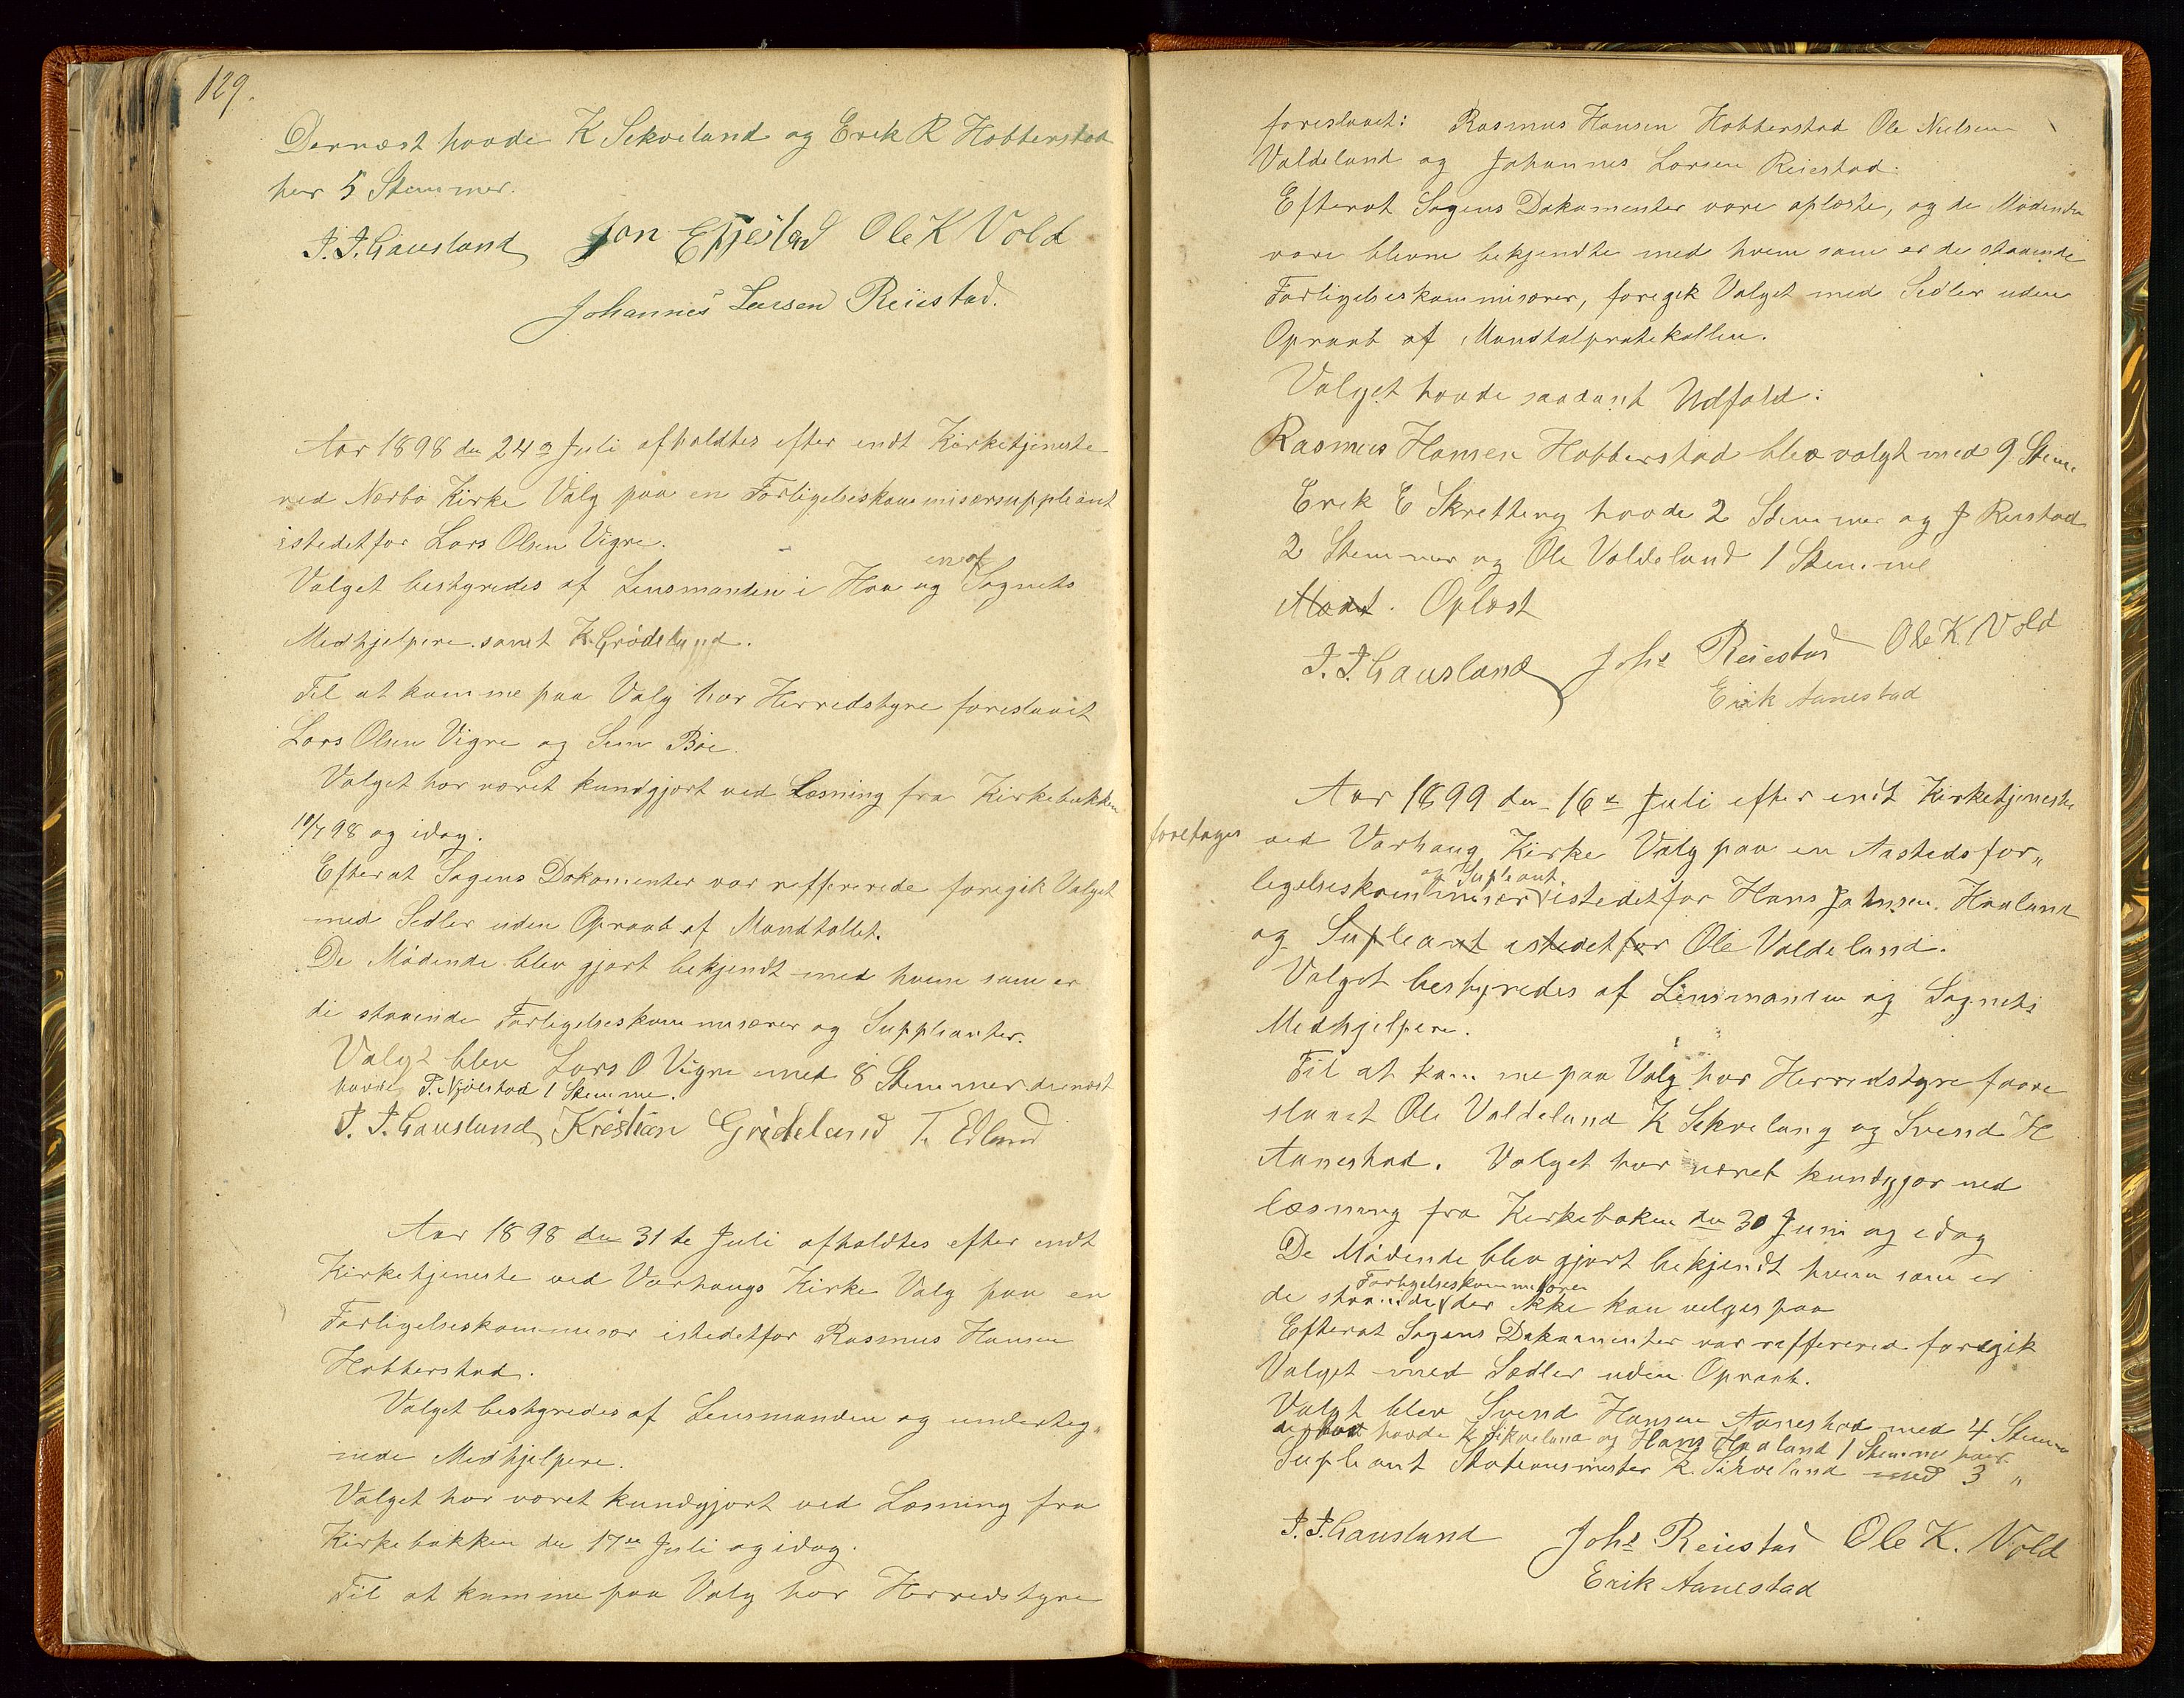 129.
Dernæst havde K Sekveland og Erik R Hobberstad
hver 5 Stemmer.
J. J. Gausland Jon Efjestad Ole K Vold
Johannes Larsen Reiestad.
Aar 1898 den 24de Juli afholdtes efter endt Kirketjeneste
ved Nærbø Kirke Valg paa en Forligelseskommisærsuppleant
istedetfor Lars Olsen Vigre.
Valget bestyredes af Lensmanden i Haa og en af Sognets
Medhjelpere samt K. Grødeland.
Til at komme paa Valg har Herredstyre foreslaaet
Lars Olsen Vigre og Sem Bøe.
Valget har været kundgjort ved Læsning fra Kirkebakken
10/7 98 og idag.
Efterat Sagens Dokomenter var refferrerede foregik Valget
med Sedler uden Opraab af Mandtallet.
De Mødende blev gjort bekjendt med hvem som er
de staaende Forligelseskommisærer og Suppleanter.
Valgt blev Lars O Vigre med 8 Stemmer dernæst
havde T. Njølstad 1 Stemme.
J. J. Gausland Kristian Grødeland T. Edland
Aar 1898 den 31te Juli afholdtes efter endt
Kirketjeneste ved Varhaugs Kirke Valg paa en
Forligelseskommisær istedetfor Rasmus Hansen
Hobberstad.
Valget bestyredes af Lensmanden og underteg„
nede Medhjelpere.
Valget har været kundgjort ved Læsning fra
Kirkebakken den 17de Juli og idag.
Til at komme paa Valg har Herredstyre
foreslaaet: Rasmus Hansen Hobberstad Ole Nielsen
Valdeland og Johannes Larsen Reiestad.
Efterat Sagens Dokumenter vare oplæste, og de Mødende
vare blevne bekjendte med hvem som er de staaende
Forligelseskommisærer, foregik Valget med Sedler uden
Opraab af Manstalprotokollen.
Valget havde saadant Udfald:
Rasmus Hansen Hobberstad blev valgt med 9 Stem.
Erik E Skretting havde 2 Stemmer og J Reiestad
2 Stemmer og Ole Valdeland 1 Stemme
Oplæst
J. J. Gausland Johs Reiestad Ole K Vold
Erik Aanestad
Aar 1899 den 16de Juli efter endt Kirketjeneste
foretages ved Varhaug Kirke Valg paa en Aastedsfor„
ligelseskommisær og Supleant istedetfor Hans Johnsen Haaland
og Supleant istedetfor Ole Valdeland.
Valget bestyredes af Lensmanden og Sognets
Medhjelpere.
Til at komme paa Valg har Herredstyre fore
slaaet Ole Valdeland K Sekvelang og Svend H
Aanestad. Valget har været kundgjor ved
læsning fra Kirkebaken den 30 Juni og idag
De Mødende blev gjort bekjendt hvem som er
de staaende Forligelseskommisærer der ikke kan velges paa
Efterat Sagens Dokumenter var reffererede foregik
Valget med Sædler uden Opraab.
Valgt blev Svend Hansen Aanestad med 4 Stemmer
havde K. Sikveland og Hans Haaland 1 Stemme hver
Supleant Stationsmester K. Sikveland med 3 „
J. J. Gausland Johs Reiestad Ole K. Vold
Erik Aanestad